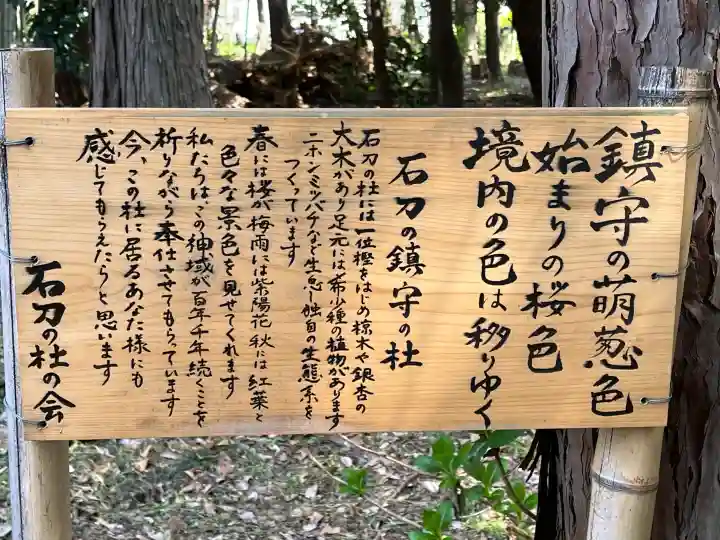 鎮守の萌葱色
始まりの桜色
境内の色は移りゆく
石刀の鎮守の杜
石刀の杜には一位樫をはじめ椋木や銀杏の
大木があり足元には希少種の植物があります
ニホンミツバチなど生息し独自の生態系を
つくっています
春には桜が梅雨には紫陽花秋には紅葉と
色々な景色を見せてくれます
私たちはこの神域が百年千年続くことを
祈りながら奉仕させてもらっています
今、この杜に居るあなた様にも
感じてもらえたらと思います
石刀の杜の会